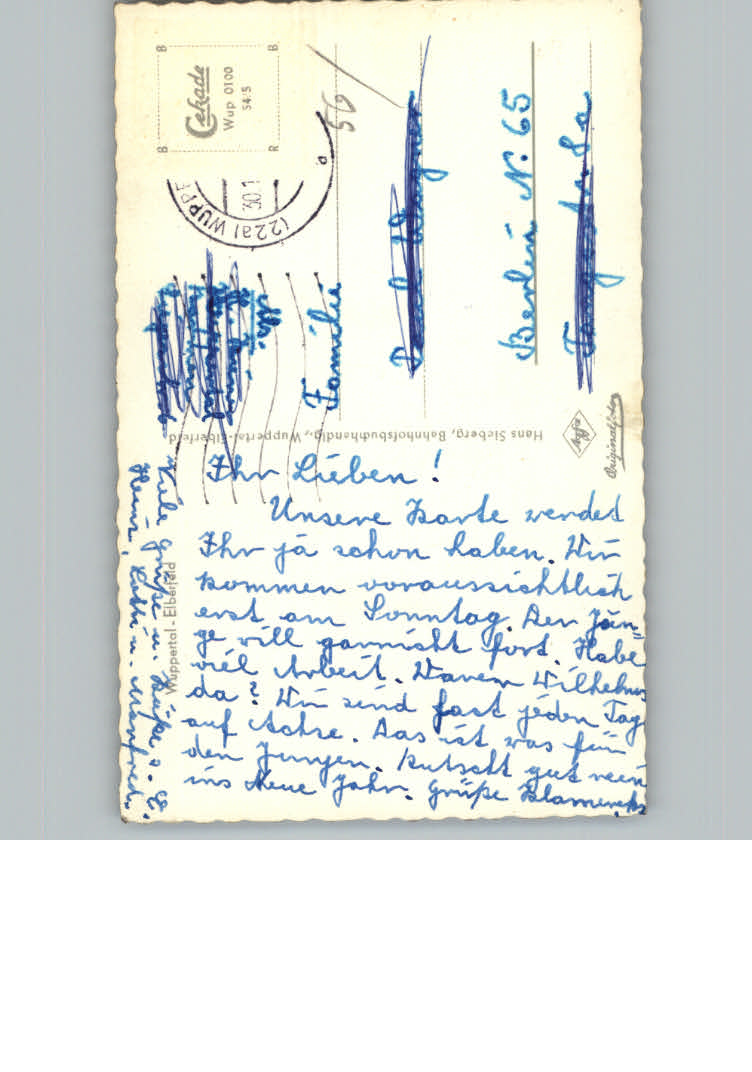 Ihr Lieben!
Unsere Karte werdet
Ihr ja schon haben. Wir
kommen voraussichtlich
erst am Sonntag. Der Jun=
ge will garnicht fort. Habe
viel Arbeit. Waren Wilhelms
da? Wir sind fast jeden Tag
auf Achse. Das ist was für
den Jungen. Rutscht gut rein
ins Neue Jahr. Grüße
Viele Grüße u. Küße s. E.
Heinz, Käthi u. Manfred.
Wuppertal-Elberfeld
Hans Sieberg, Bahnhofsbuchhandlg., Wuppertal-Elberfeld
Cekade
Wup 0100
54/5
B B
B R
(22a) WUPPE
30.1
a
56
Abs.
Familie
Berlin N. 65
Agfa
Originalfoto